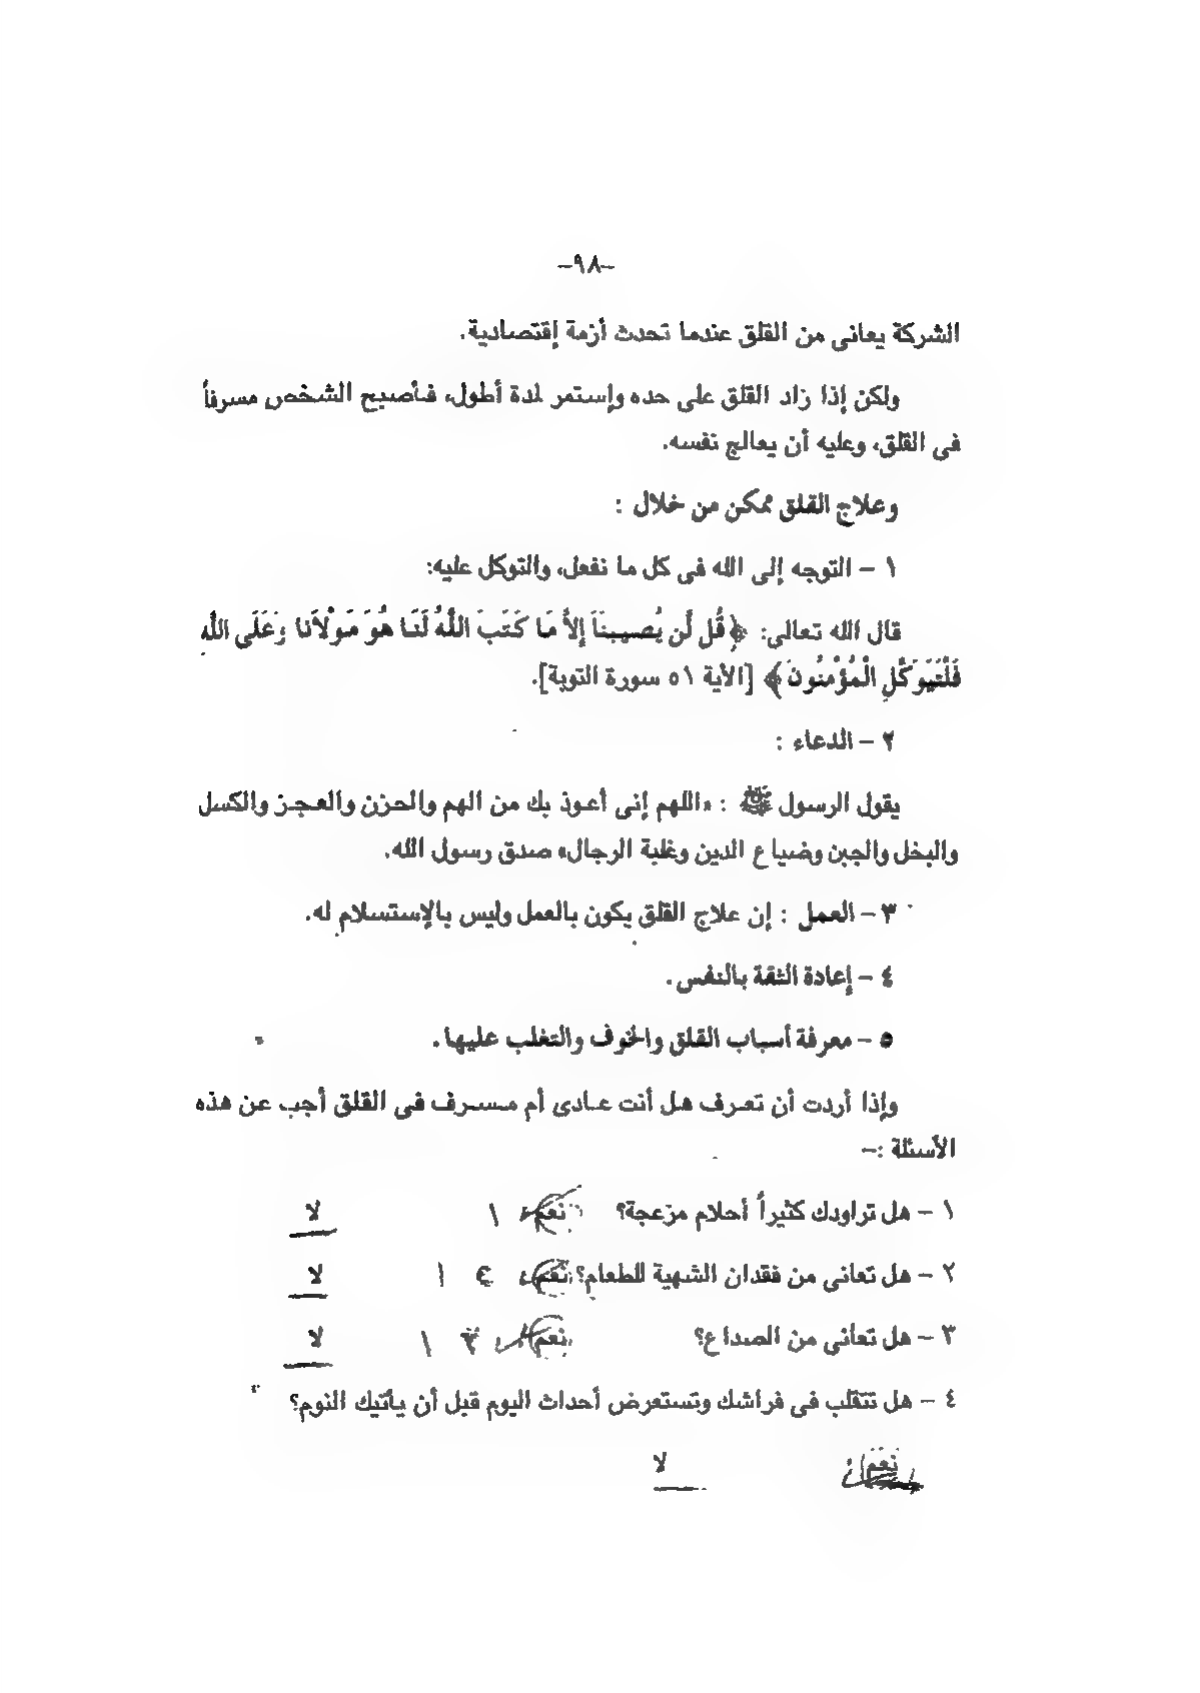 -٩٨-
الشركة يعانى من القلق عندما تحدث أزمة إقتصادية.
ولكن إذا زاد القلق على حده وإستمر لمدة أطول، فأصبح الشخص مسرفاً
فى القلق، وعليه أن يعالج نفسه.
وعلاج القلق ممكن من خلال :
١ - التوجه إلى الله فى كل ما نفعل، والتوكل عليه:
قال الله تعالى: ﴿قُل لَّن يُصِيبَنَا إِلاَّ مَا كَتَبَ اللَّهُ لَنَا هُوَ مَوْلاَنَا وَعَلَى اللَّهِ
فَلْيَتَوَكَّلِ الْمُؤْمِنُونَ﴾ [الآية ٥١ سورة التوبة].
٢ - الدعاء :
يقول الرسول ﷺ : «اللهم إنى أعوذ بك من الهم والحزن والعجز والكسل
والبخل والجبن وضياع الدين وغلبة الرجال» صدق رسول الله.
٣ - العمل : إن علاج القلق يكون بالعمل وليس بالإستسلام له.
٤ - إعادة الثقة بالنفس.
٥ - معرفة أسباب القلق والخوف والتغلب عليها.
وإذا أردت أن تعرف هل أنت عادى أم مسرف فى القلق أجب عن هذه
الأسئلة :-
١ - هل تراودك كثيراً أحلام مزعجة؟ نعم ١ لا
٢ - هل تعانى من فقدان الشهية للطعام؟ نعم ١ لا
٣ - هل تعانى من الصداع؟ نعم ١ لا
٤ - هل تتقلب فى فراشك وتستعرض أحداث اليوم قبل أن يأتيك النوم؟
نعم لا